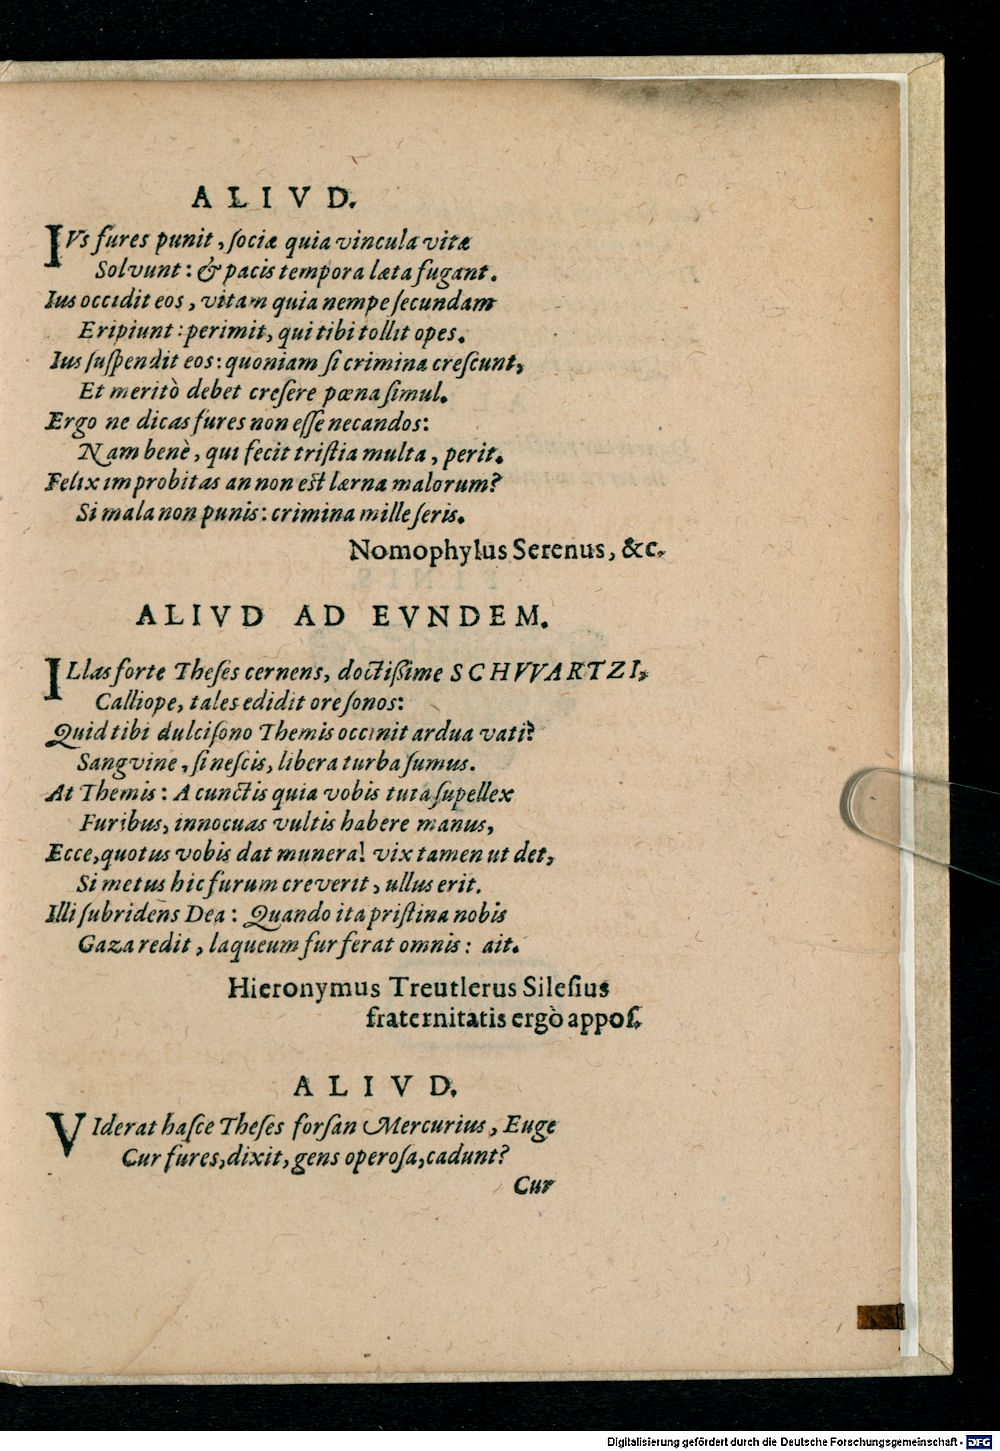 ALIVD.
IVs fures punit, ſociæ quia vincula vitæ
Solvunt: & pacis tempora læta fugant.
Ius occidit eos, vitam quia nempe ſecundam
Eripiunt: perimit, qui tibi tollit opes.
Ius ſuſpendit eos: quoniam ſi crimina creſcunt,
Et meritò debet creſere pœna ſimul.
Ergo ne dicas fures non eſſe necandos:
Nam benè, qui fecit triſtia multa, perit.
Felix improbitas an non eſt lærna malorum?
Si mala non punis: crimina mille ſeris.
Nomophylus Serenus, &c.
ALIVD AD EVNDEM.
ILlas forte Theſes cernens, doctiſſime SCHVVARTZI,
Calliope, tales edidit ore ſonos:
Quid tibi dulciſono Themis occinit ardua vati?
Sangvine, ſi neſcis, libera turba ſumus.
At Themis: A cunctis quia vobis tuta ſupellex
Furibus, innocuas vultis habere manus,
Ecce, quotus vobis dat munera! vix tamen ut det,
Si metus hic furum creverit, ullus erit.
Illi ſubridens Dea: Quando ita priſtina nobis
Gaza redit, laqueum fur ferat omnis: ait.
Hieronymus Treutlerus Sileſius
fraternitatis ergò appoſ.
ALIVD.
VIderat haſce Theſes forſan Mercurius, Euge
Cur fures, dixit, gens operoſa, cadunt?
Cur
Digitalisierung gefördert durch die Deutsche Forschungsgemeinschaft - DFG